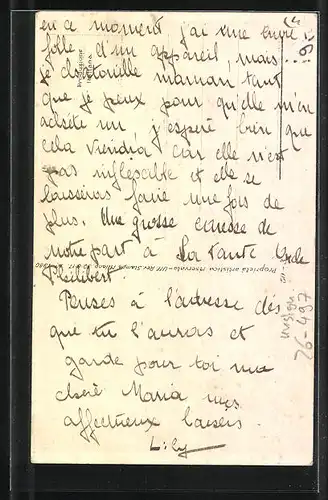 en ce moment j'ai une envie
folle d'un appareil, mais
je chatouille maman tant
que je peux pour qu'elle m'en
achète un, j'espère bien que
cela viendra car elle n'est
pas inflexible et elle se
laissera faire une fois de
plus. Une grosse caresse de
notre part à La Tante
Philibert.
Penses à l'adresse dès
que tu l'auras et
garde pour toi ma
chère Maria mes
affectueux baisers
Lily
Proprietà artistica riservata
26-497